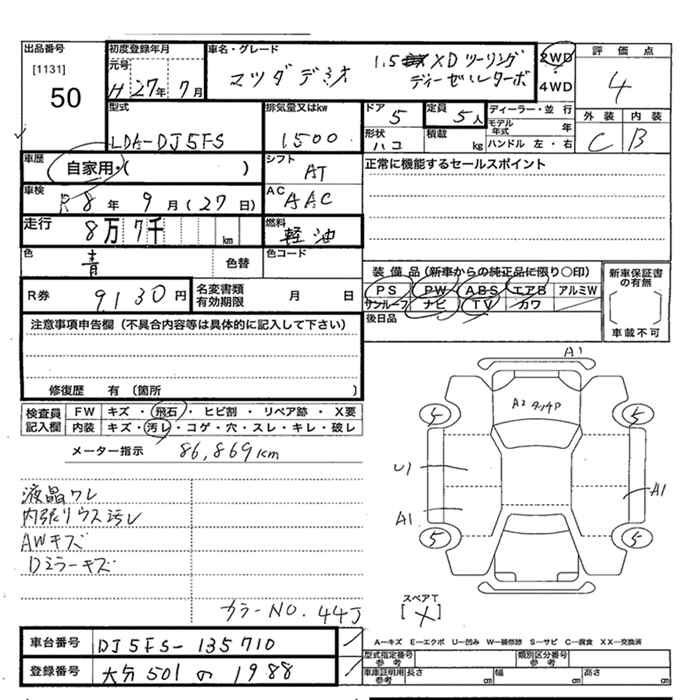 出品番号 初度登録年月 車名・グレード 評価点
[1131] 元号 1.5 XDツーリング 2WD
50 H 27年 7月 マツダデミオ ディーゼルターボ 4WD 4
型式 排気量又はkw ドア 5 定員 5人 ディーラー・並行 外装 内装
LDA-DJ5FS 1500 形状 ハコ 積載 kg モデル年式 年 C B
ハンドル 左・右
車歴 自家用・( ) シフト AT 正常に機能するセールスポイント
車検 R8年 9月(27日) AC AAC
走行 8万7千 km 燃料 軽油
色 青 色替 色コード 装備品(新車からの純正品に限り○印) 新車保証書の有無
R券 9,130円 名変書類有効期限 月 日 PS PW ABS エアB アルミW
サンルーフ ナビ TV カワ
後日品 車載不可
注意事項申告欄(不具合内容等は具体的に記入して下さい)
修復歴 有(箇所 )
検査員記入欄 FW キズ・飛石・ヒビ割・リペア跡・X要
内装 キズ・汚レ・コゲ・穴・スレ・キレ・破レ
メーター指示 86,869km
A1
A2タッチP
5 5
U1
A1 A1
5 5
液晶ワレ
内張リウス汚レ
AWキズ
Dミラーキズ
カラーNO. 44J
スペアT
[X]
A-キズ E-エクボ U-凹み W-補修跡 S-サビ C-腐食 XX-交換済
車台番号 DJ5FS-135710 型式指定番号参考 類別区分番号参考
登録番号 大分501の1988 車庫証明用参考 長さ cm 幅 cm 高さ cm